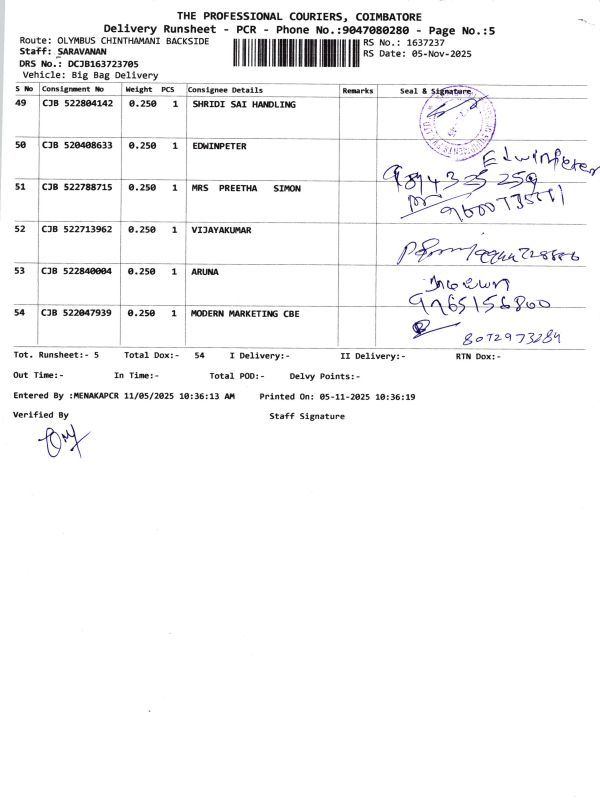 THE PROFESSIONAL COURIERS, COIMBATORE
Delivery Runsheet - PCR - Phone No.:9047080280 - Page No.:5
Route: OLYMBUS CHINTHAMANI BACKSIDE
RS No.: 1637237
Staff: SARAVANAN
RS Date: 05-Nov-2025
DRS No.: DCJB163723705
Vehicle: Big Bag Delivery
S No Consignment No Weight PCS Consignee Details Remarks Seal & Signature
49 CJB 522804142 0.250 1 SHRIDI SAI HANDLING
50 CJB 520408633 0.250 1 EDWINPETER
Edwinpeter
9894325259
51 CJB 522788715 0.250 1 MRS PREETHA SIMON
52 CJB 522713962 0.250 1 VIJAYAKUMAR
53 CJB 522840004 0.250 1 ARUNA
9765156800
54 CJB 522047939 0.250 1 MODERN MARKETING CBE
8072973284
Tot. Runsheet:- 5 Total Dox:- 54 I Delivery:- II Delivery:- RTN Dox:-
Out Time:- In Time:- Total POD:- Delvy Points:-
Entered By :MENAKAPCR 11/05/2025 10:36:13 AM Printed On: 05-11-2025 10:36:19
Verified By Staff Signature